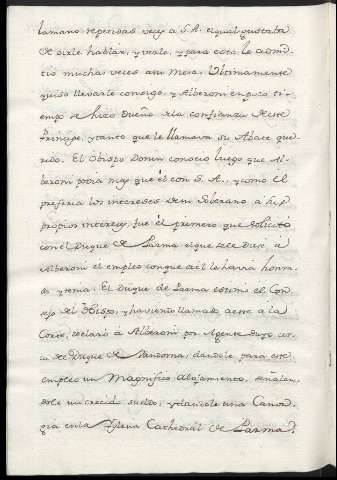 lamano repetidas veces a S.A. el qual gustaba
de oirle hablar, y verlo, y para esto le admi
tio muchas veces a su mesa. Ultimamente
quiso llevarle consigo, y Alberoni en poco ti-
empo se hizo Dueño de la confianza de este
Principe, y tanto que le llamava su Abate que
rido. El Obispo Donin conocio luego que Al-
beroni podia mas que él con S.A., y como él
preferia los intereses de su Soberano a sus
propios interezes, fue el primero que solicitó
con el Duque de Parma el que se le diese à
Alberoni el empleo con que a él le havia honra-
do, y tenia. El Duque de Parma estimó el Con
sejo del Obispo, y haviendo llamado a este a la
Corte, declaró à Alberoni por Agente suyo cer-
ca de Duque de Vandoma, dandole para este
empleo un Magnifico Alojamiento, señalan-
dole un crecido sueldo, y dandole una Canon-
gia en la Yglesia Cathedral de Parma.